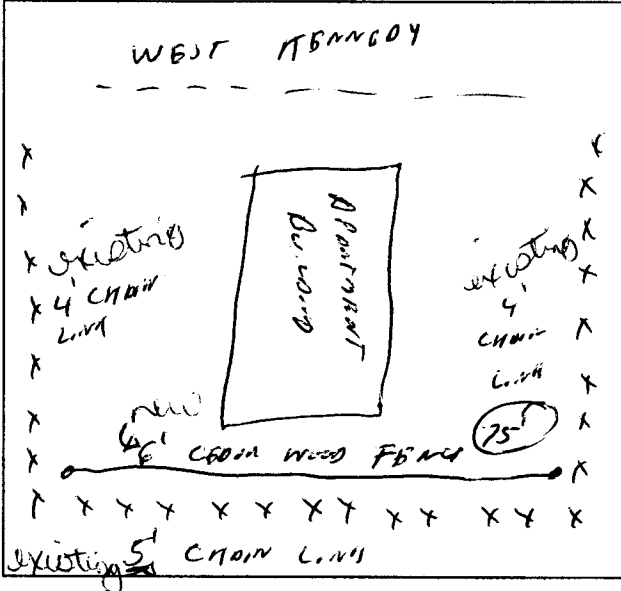 WEST KENNEDY
existing
4' CHAIN
LINK
APARTMENT
BUILDING
existing
4'
CHAIN
LINK
new
6' CEDAR WOOD FENCE
75'
existing 5' CHAIN LINK